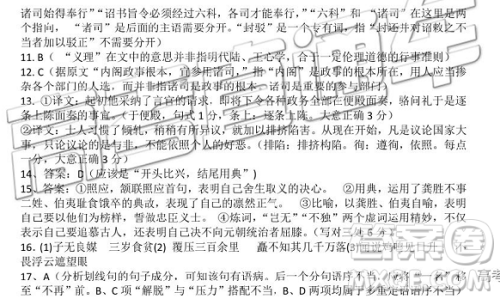 诸司始得奉行”“诏书旨令必须经过六科,各司才能奉行,”“六科”和“诸司”在这里是两
个指向,“诸司”是后面的主语需要分开。“封驳”是一个专有词,指“封还并对诏敕之不
当者加以驳正”不需要分开)
11.B(“义理”在文中的意思并非指明代陆、王心学,合于一定伦理道德的行事准则)
12.C(据原文“内阁政事根本,宜参用诸司,”指“内阁是”政事的根本所在,用人应当掺
杂各个部门的人选,而并非指诸司是政事的根本。诸司是重要的事务部门)
13.①译文:起初他采纳了言官的请求,即将下令各种政务全部在便殿面奏,骆问礼于是逐
条上陈面奏的事宜。(于便殿,句式1分,条上:逐条上陈。大意正确3分)
②译文:士人习惯了倾轧,稍稍有所异同,就加以排挤陷害。从现在开始,凡是议论国家大
事,只论议论的是与非,不能依照个人的好恶。(排陷:排挤构陷。徇:遵徇,依照。每点
一分,大意正确3分)
14.答案:D(应该是“开头比兴,结尾用典”)
15.答案:①照应,颔联照应首句,表明自己舍生取义的决心。 ②用典,运用了龚胜不事
二姓、伯夷耻食饿卒的典故,表现了自己的凛然正气。 ③对比,自己与龚胜、伯夷对比,
表明自己要以他们为榜样,誓做忠臣义士。④炼词,“岂无”“不独”用双重否定,不仅
表示自己追慕古人,还表明自己决不向元朝统治者屈膝。(写对三点
16.(1)子无良媒 三岁食贫(2) 覆压三百余里 矗不知其几千万落(3)
畏浮云遮望眼
17、A(分析划线句的句子成分,可知该句有语病。后一个分句语序不当
至“不再”前。B、C项“解脱”与“压力”搭配不当,B、D项语序不当